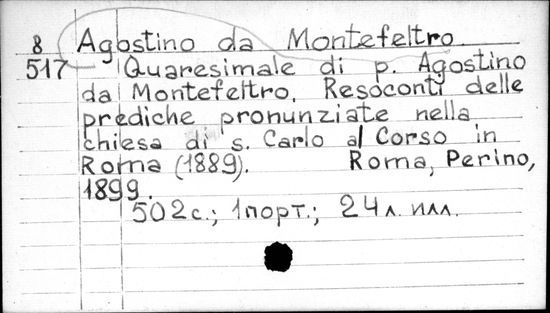 8 Agostino da Montefeltro.
517 Quaresimale di p. Agostino
da Montefeltro. Resoconti delle
prediche pronunziate nella
chiesa di s. Carlo al Corso in
Roma (1889). Roma, Perino,
1899.
502 с.; 1 порт.; 24 л. илл.